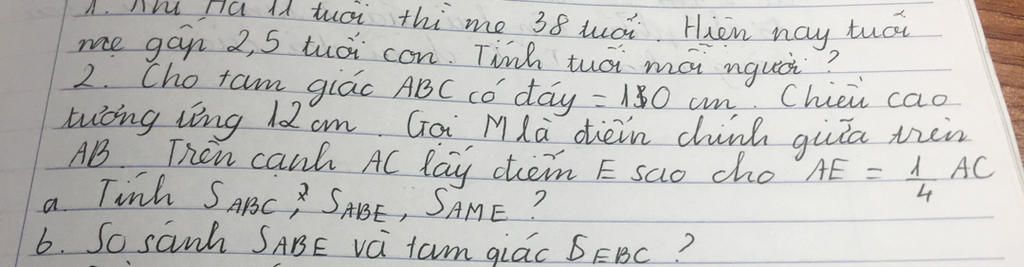 1. Khi Hà 11 tuổi thì mẹ 38 tuổi. Hiện nay tuổi
mẹ gấp 2,5 tuổi con. Tính tuổi mỗi người?
2. Cho tam giác ABC có đáy = 180 cm. Chiều cao
tương ứng 12 cm. Gọi M là điểm chính giữa trên
AB. Trên cạnh AC lấy điểm E sao cho AE = 1/4 AC
a. Tính S ABC, S ABE, S AME?
b. So sánh S ABE và tam giác S EBC?